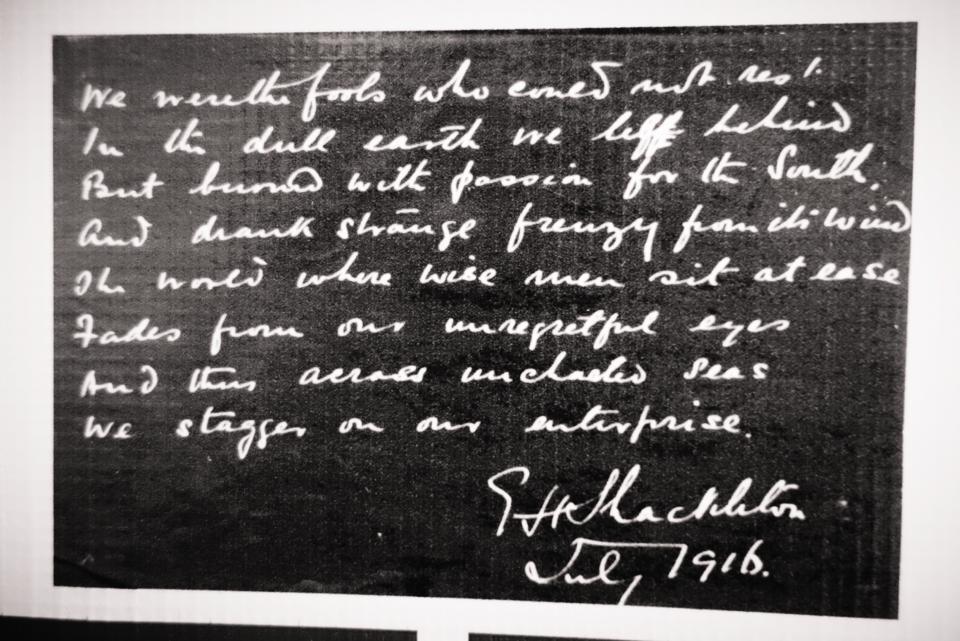 We were the fools who could not rest
In the dull earth we left behind
But burned with passion for the South,
And drank strange frenzy from its wind
The world where wise men sit at ease
Fades from our unregretful eyes
And thus across uncharted seas
We stagger on our enterprise.
E H Shackleton
July 1916.